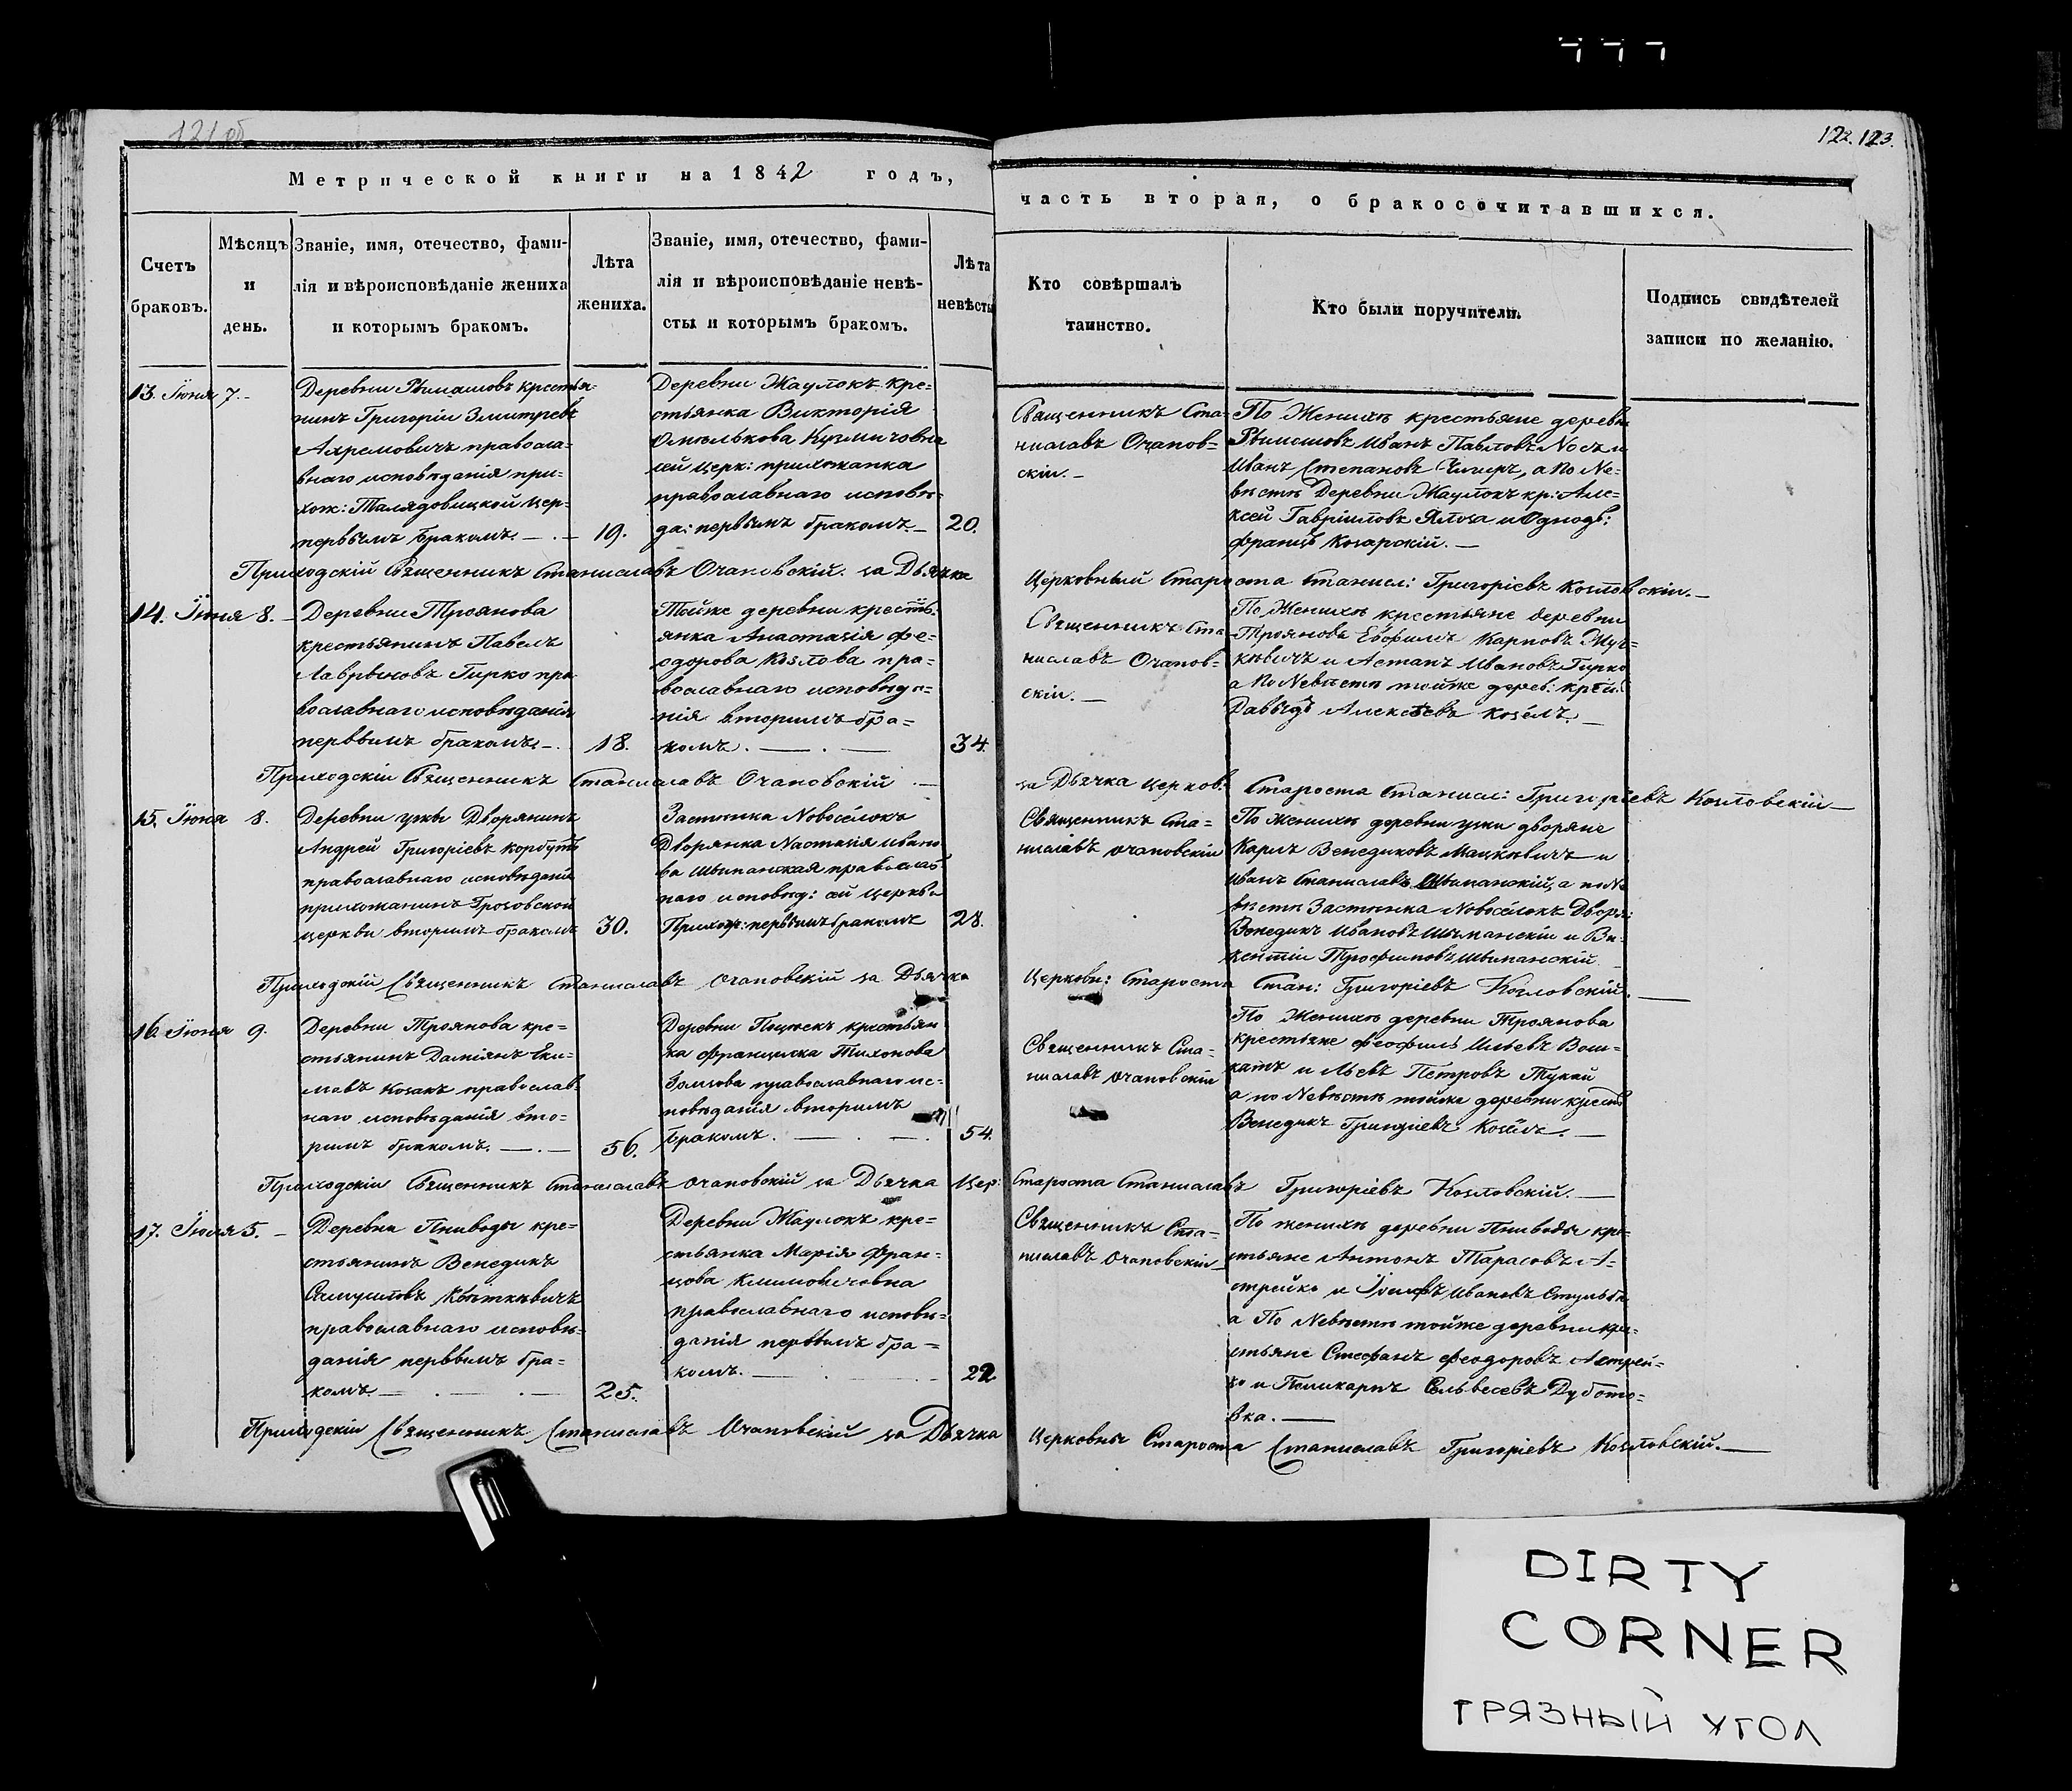 121 об
122. 123.
Метрической книги на 1842 годъ,
часть вторая, о бракосочитавшихся.
Счетъ браковъ.
Мѣсяцъ и день.
Званіе, имя, отечество, фами-
лія и вѣроисповѣданіе жениха
и которымъ бракомъ.
Лѣта жениха.
Званіе, имя, отечество, фами-
лія и вѣроисповѣданіе невѣ-
сты и которымъ бракомъ.
Лѣта невѣсты
Кто совѣршалъ
таинство.
Кто были поручители.
Подпись свидѣтелей
записи по желанію.
13. Іюня 7.
Деревни крестья-
нинъ Григоріи Змитревъ
Ахремовичъ правосла-
внаго исповѣданія при-
хож: Талядовицкой цер-
первымъ бракомъ. —
19.
Деревни Жаулокъ кре-
стьянка Викторія
Кузмичовна
сей церк: прихожанка
православнаго исповѣ-
да: первымъ бракомъ —
20.
Священникъ Ста-
ниславъ Очапов-
скіи. —
По Женихѣ крестьяне деревни
Иванъ Павловъ и
Иванъ Степановъ а по Не-
вѣстѣ Деревни Жаулокъ кр: Але-
ксей Гавріиловъ и Однодв:
Францъ Козарскій. —
Приходскій Священникъ Станиславъ Очаповскій. за Дьячка
Церковный Староста Станисл: Григоріевъ Козловскіи. —
14. Іюня 8. —
Деревни Троянова
крестьянинъ Павелъ
Лавриновъ Гирко пра
вославнаго исповѣданія
первымъ бракомъ —
18.
Тойже деревни кресть-
янка Анастасія Фе-
одорова Козлова пра-
вославнаго исповѣда-
нія вторимъ бра-
комъ. —
34.
Священникъ Ста
ниславъ Очапов-
скіи. —
По Женихѣ крестьяне деревни
Троянова Евфимъ Карповъ
и Астапъ Ивановъ Гирко
а По Невѣстѣ тойже дерев: крес:
Давыдъ Алексѣевъ Козёлъ. —
Приходскіи Священникъ Станиславъ Очаповскій —
за Дьячка церков: Староста Станисл: Григоріевъ Козловскіи —
15. Іюня 8.
Деревни Узкы Дворянинъ
Андрей Григоріевъ Корбутъ
православнаго исповѣданія
прихожанинъ Грозовской
церкви вторимъ бракомъ
30.
Застѣнка Новосёлокъ
Дворянка Настасія Ивано
ва православ
наго исповѣд: сей церкви
Прихож: первымъ бракомъ
28.
Священникъ Ста-
ниславъ Очаповскіи
По Женихѣ деревни Узки дворяне
Карлъ Венедиковъ Мацкѣвичъ и
Иванъ Станиславъ а по Не
вѣстѣ Застѣнка Новосёлокъ Дворя:
Венедикъ Ивановъ и Ви-
кентіи Трофимовъ
Приходскій Священникъ Станиславъ Очаповскій за Дьячка
Церковн: Староста Стан: Григоріевъ Козловскій. —
16. Іюня 9.
Деревни Троянова кре-
стьянинъ Даміянъ Еки-
мовъ Козакъ православ
наго исповѣданія вто-
римъ бракомъ. —
56.
Деревни крестьян
ка Франциска Тихонова
православнаго ис-
повѣданія вторимъ
бракомъ. —
54.
Священникъ Ста-
ниславъ Очаповскіи
По Женихѣ деревни Троянова
крестьяне Феофилъ Ильевъ
и Львъ Петровъ
а по Невѣстѣ тойже деревни крест
Венедикъ Григоріевъ Козёлъ. —
Приходскіи Священникъ Станиславъ Очаповскій за Дьячка Цер:
Староста Станиславъ Григоріевъ Козловскій. —
17. Іюля 5. —
Деревни Пниводы кре-
стьянинъ Венедикъ
Самуиловъ Квяткѣвичъ
православнаго исповѣ-
данія первымъ бра-
комъ —
25.
Деревни Жаулокъ кре-
стьянка Марія Фран-
цова Климовичовна
православнаго исповѣ-
данія первымъ бра-
комъ. —
22
Священникъ Ста-
ниславъ Очаповскіи
По женихѣ деревни Пниводы кре-
стьяне Антонъ Тарасовъ А-
стрейко и Іосифъ Ивановъ
а По Невѣстѣ тойже деревни кре-
стьяне Стефанъ Феодоровъ Астрей-
ко и Поликарпъ Сильвесевъ Дубото-
вка. —
Приходскіи Священникъ Станиславъ Очаповскій за Дьячка
Церковны Староста Станиславъ Григоріевъ Козловскій. —
DIRTY
CORNER
ГРЯЗНЫЙ УГОЛ